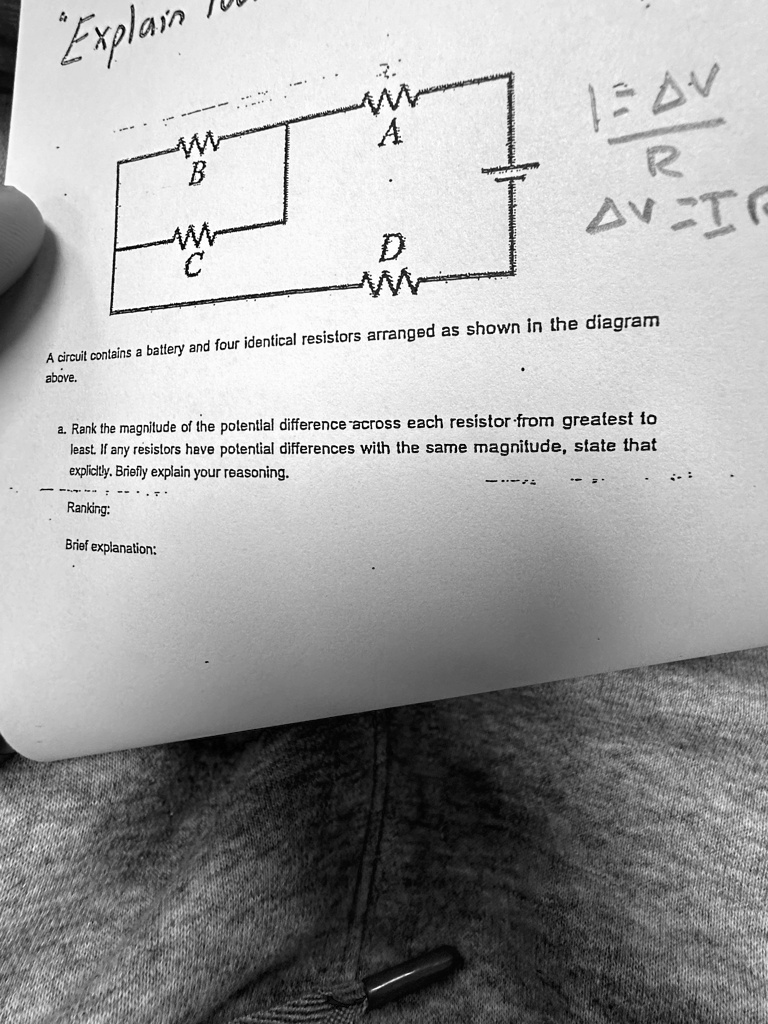 "Explain
I = ΔV
R
ΔV = I
A
B
C
D
A circuit contains a battery and four identical resistors arranged as shown in the diagram
above.
a. Rank the magnitude of the potential difference across each resistor from greatest to
least. If any resistors have potential differences with the same magnitude, state that
explicitly. Briefly explain your reasoning.
Ranking:
Brief explanation: